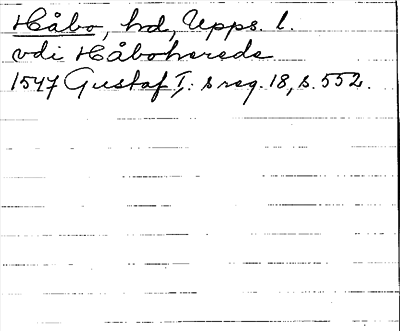 Håbo, hd, Upps. l.
vdi Håboherede
1547 Gustaf I: s reg. 18, s. 552.